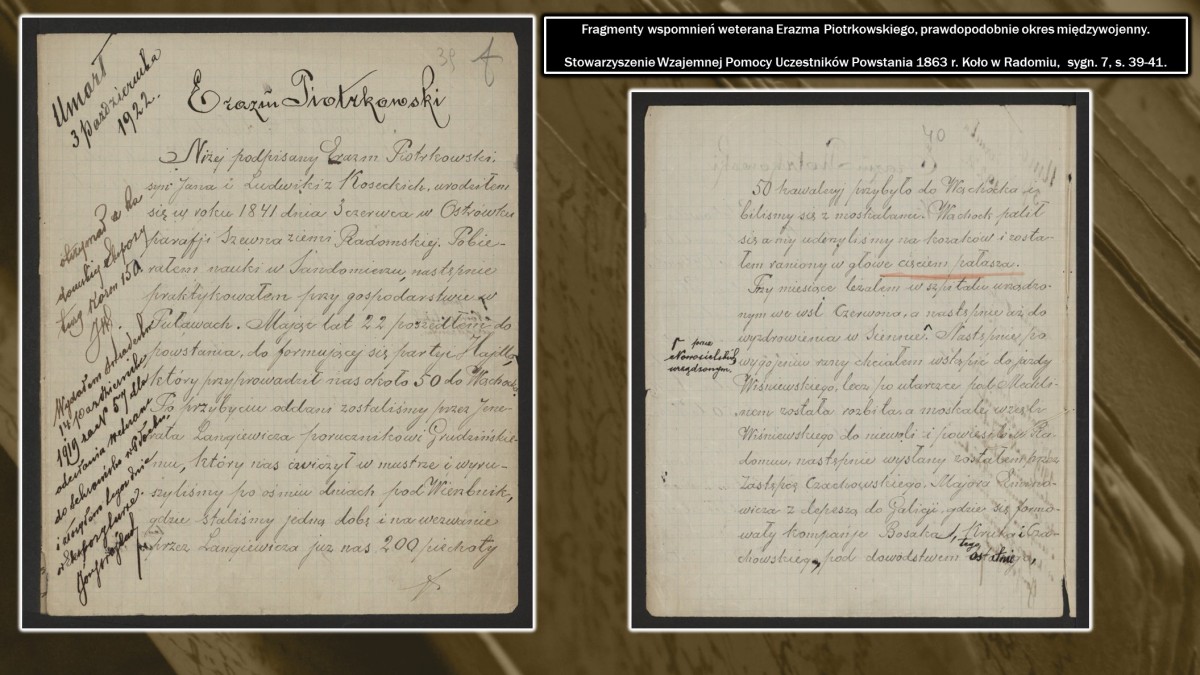 Fragmenty wspomnień weterana Erazma Piotrkowskiego, prawdopodobnie okres międzywojenny.
Stowarzyszenie Wzajemnej Pomocy Uczestników Powstania 1863 r. Koło w Radomiu, sygn. 7, s. 39-41.
39
Umarł
3 Października
1922.
Erazm Piotrkowski
Niżej podpisany Erazm Piotrkowski,
syn Jana i Ludwiki z Koseckich, urodziłem
się w roku 1841 dnia 3 czerwca w Ostrówku
parafji Szewna ziemi Radomskiej. Pobie-
rałem nauki w Sandomierzu, następnie
praktykowałem przy gospodarstwie w
Puławach. Mając lat 22 poszedłem do
powstania, do formującej się partyi
który przyprowadził nas około 50 do Wąchocka.
Po przybyciu oddani zostaliśmy przez Jene-
rała Langiewicza porucznikowi Grudzińskie-
mu, który nas ćwiczył w mustrze i wyru-
szyliśmy po ośmiu dniach pod Wierzbnik,
gdzie staliśmy jedną dobę i na wezwanie
przez Langiewicza już nas 200 piechoty
otrzymał z ra
domskiej Ekspozy
tury Koron 150
Wysłałem świadectwo
14 października
1919 za N 57 dla
do schroniska
40
50 kawalerji przybyło do Wąchocka i
biliśmy się z moskalami. Wąchock palił
się a my uderzyliśmy na kozaków i zosta-
łem raniony w głowę cięciem pałasza.
Trzy miesiące leżałem w szpitalu urządzo-
nym we wsi Czerwona, a następnie aż do
wyzdrowienia w Siennie. Następnie po
wygojeniu rany chciałem wstąpić do jazdy
Wiśniewskiego, lecz po utarczce pod
została rozbita, a moskale wzięli
Wiśniewskiego do niewoli i powiesili w Ra-
domiu, następnie wysłany zostałem przez
Zastępcę Czachowskiego, Majora
wicza z depeszą do Galicji, gdzie się formo-
wały kompanje Bosaka, Kruka i Cza-
chowskiego, pod dowództwem tego ostatniego,
przez
urządzonym.